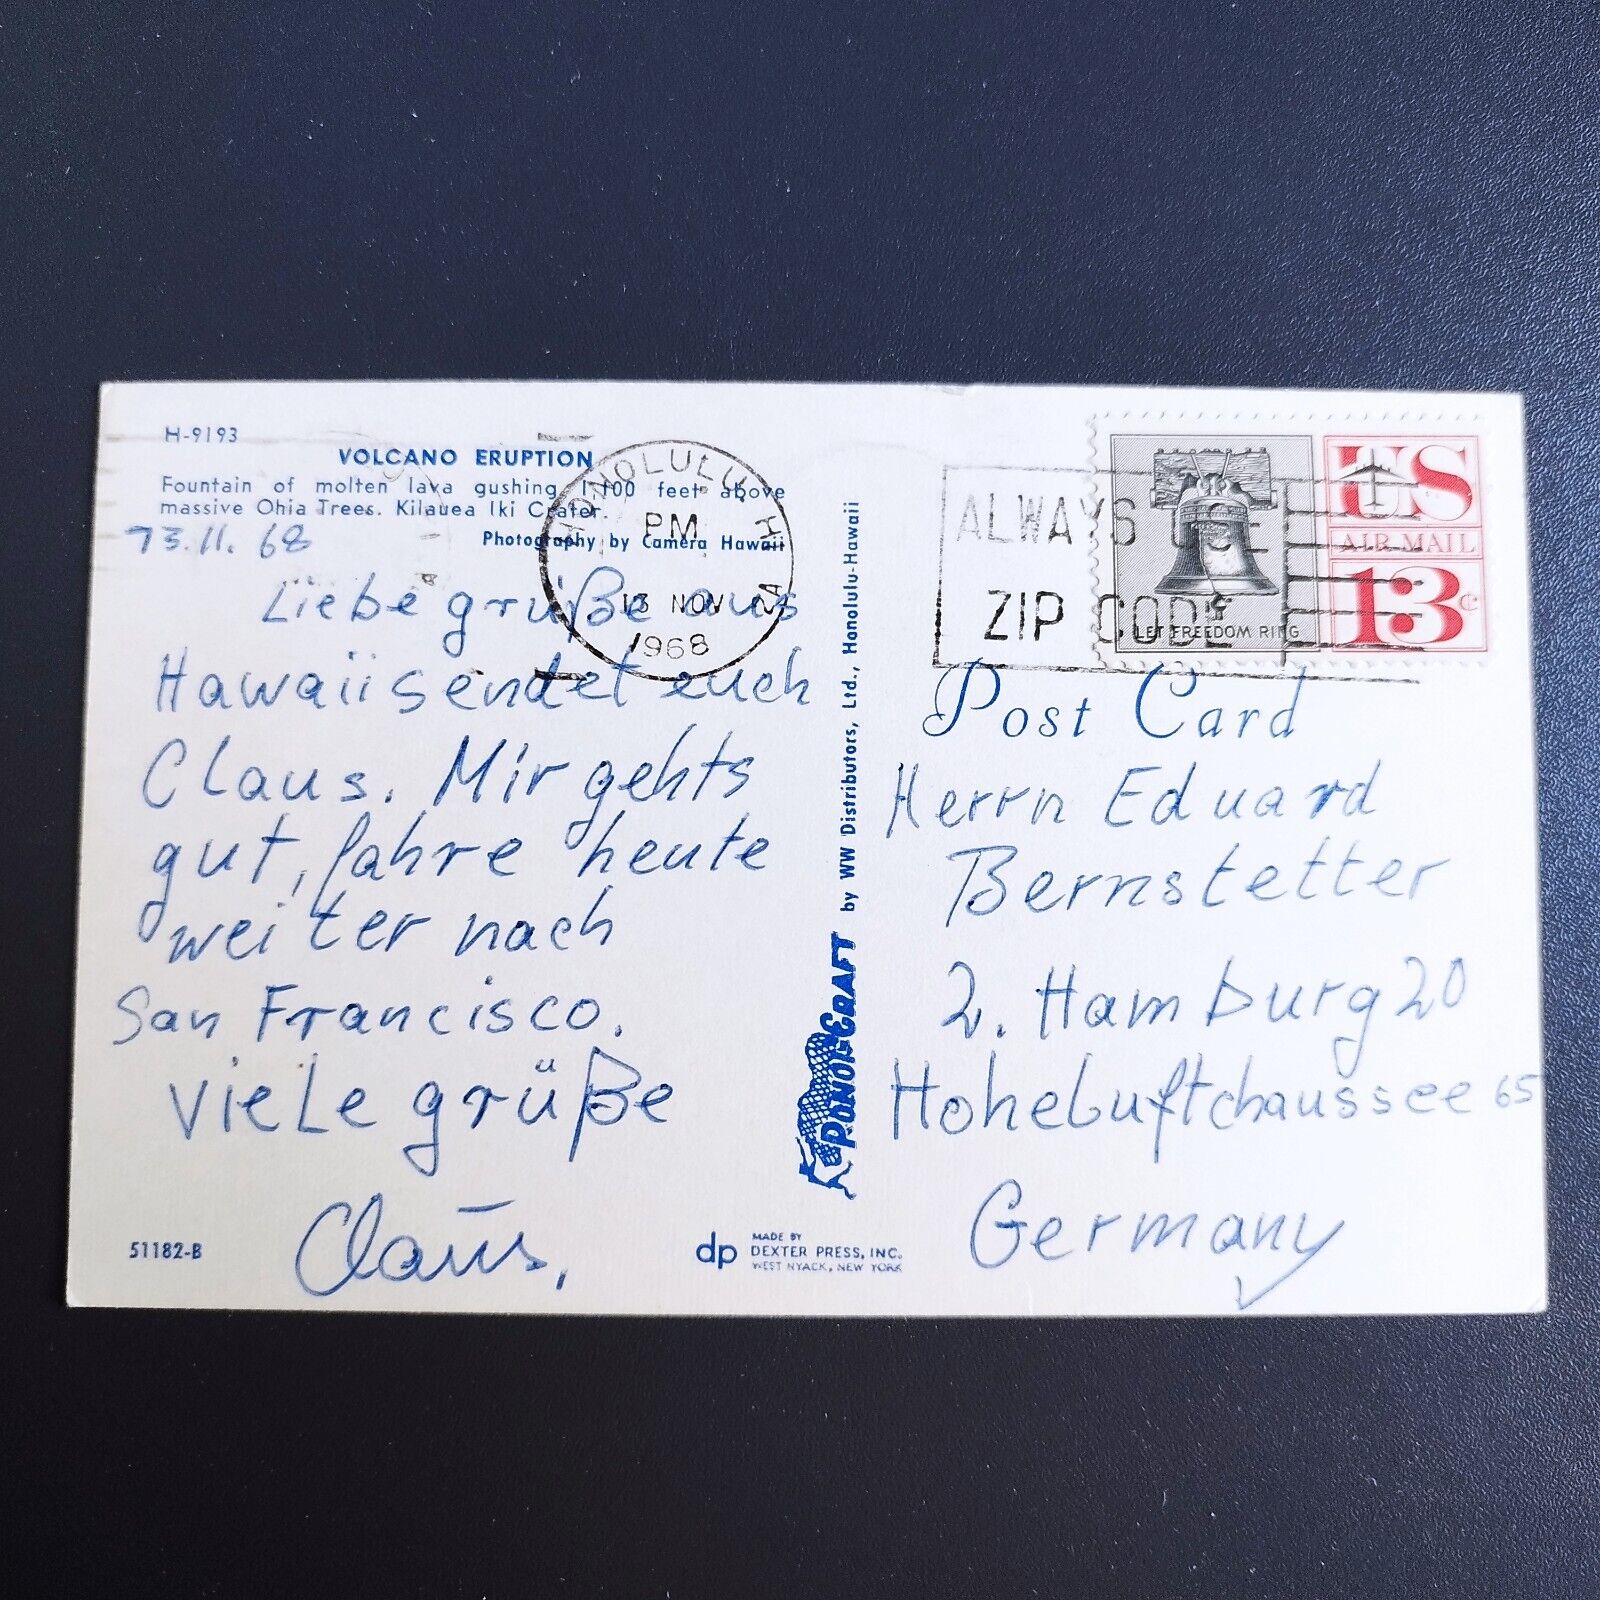 H-9193
VOLCANO ERUPTION
Fountain of molten lava gushing 1,100 feet above
massive Ohia Trees. Kilauea Iki Crater.
Photography by Camera Hawaii
13.11.68
Liebe grüße aus
Hawaii sendet euch
Claus. Mir gehts
gut, fahre heute
weiter nach
San Francisco.
Viele grüße
Claus.
51182-B
dp
MADE BY
DEXTER PRESS, INC.
WEST NYACK, NEW YORK
HONOLULU, HA
PM
13 NOV
1968
by WW Distributors, Ltd., Honolulu-Hawaii
ALWAYS USE
ZIP CODE
LET FREEDOM RING
US
AIR MAIL
13c
Post Card
Herrn Eduard
Bernstetter
2. Hamburg 20
Hoheluftchaussee 65
Germany